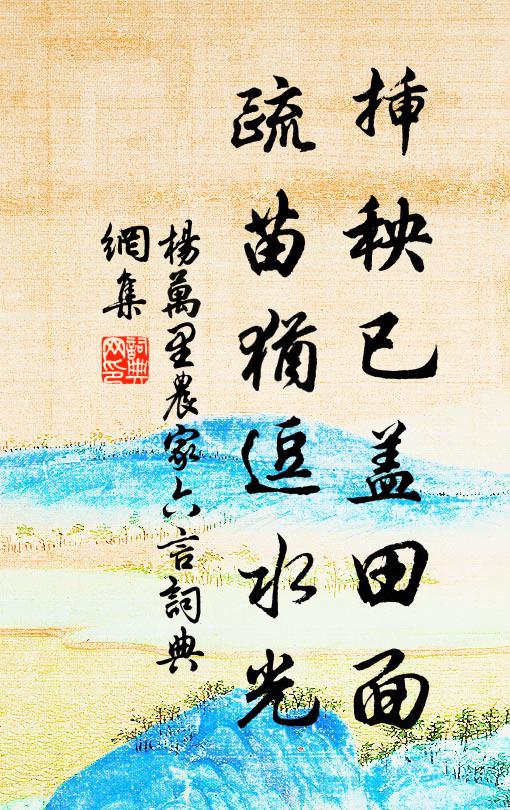 插秧已盖田面
疏苗犹逗水光
楊萬里農家六言詞典
網集
詞典網印